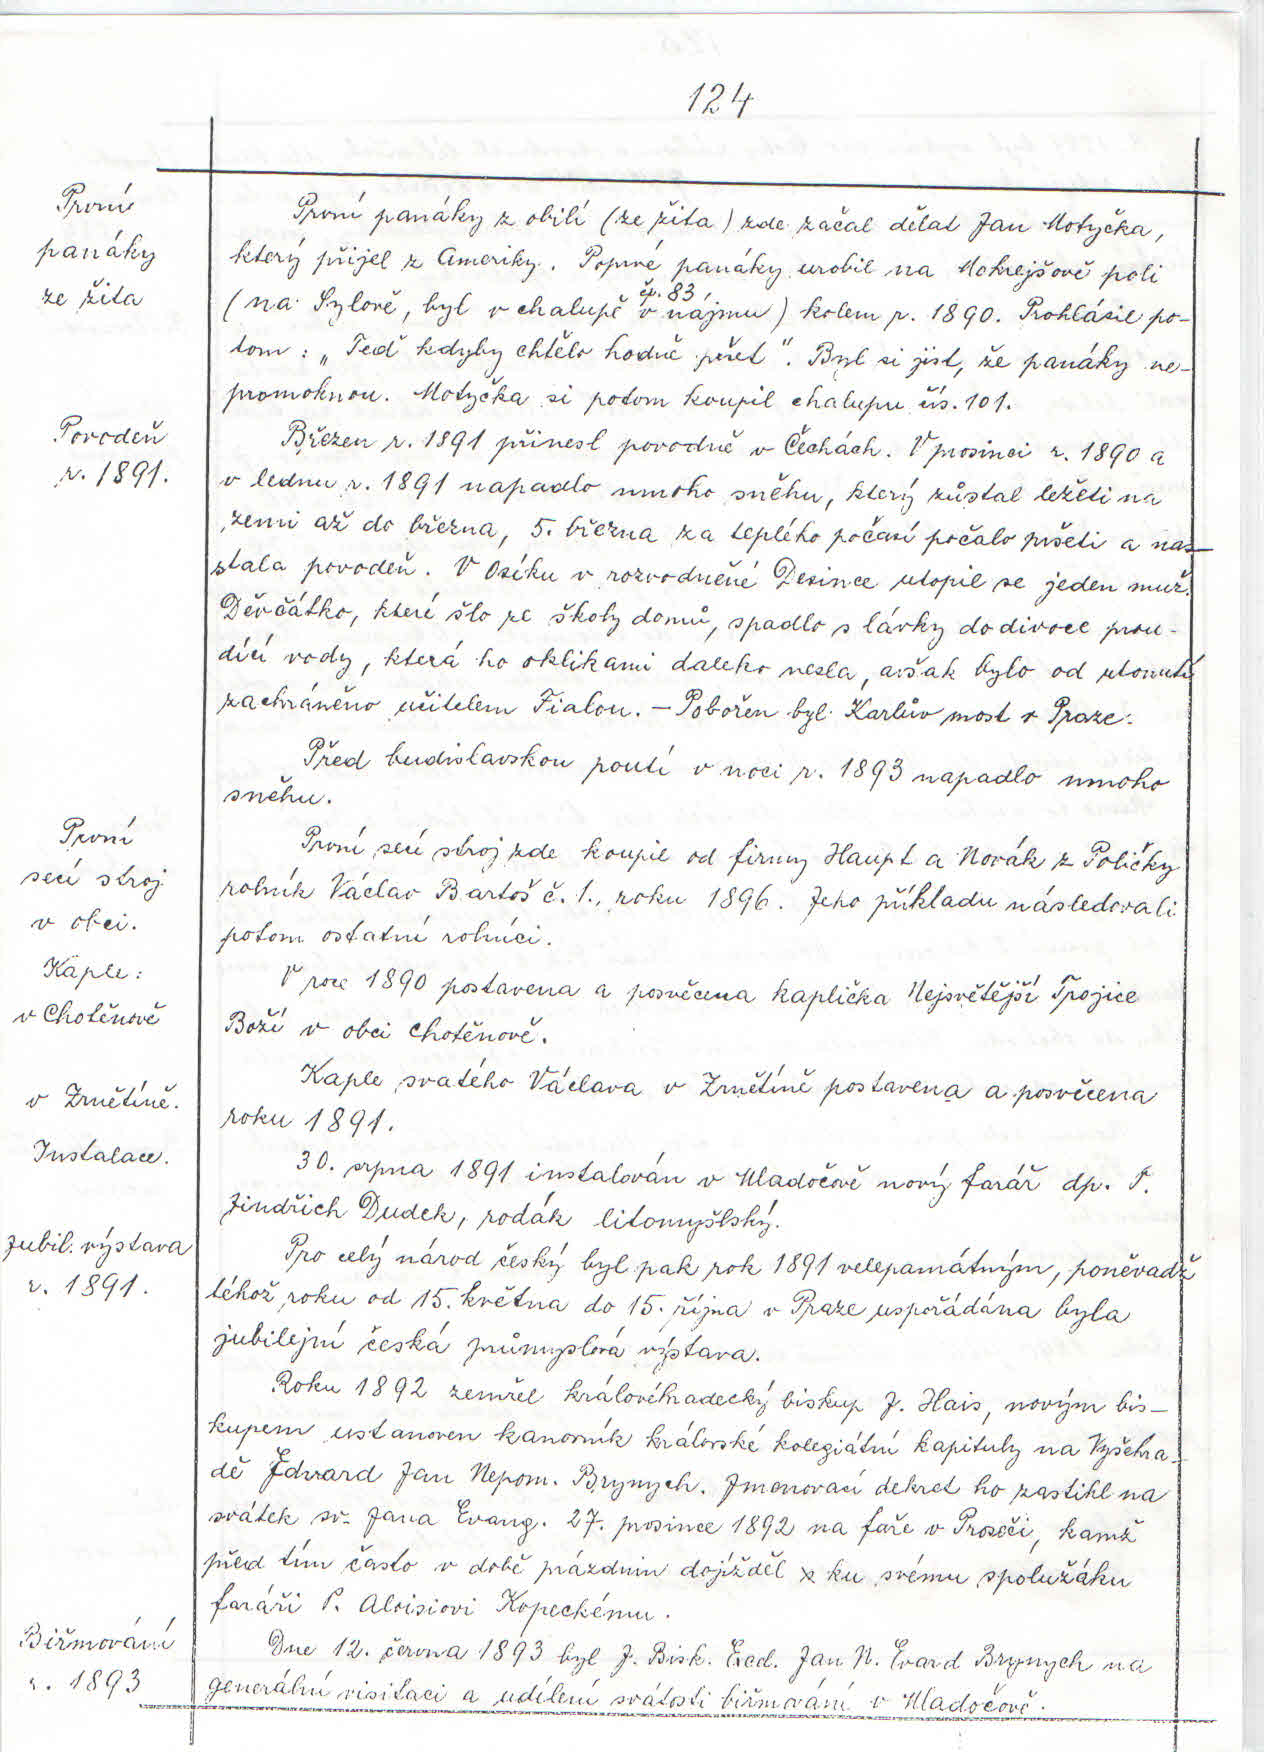 124
První
panáky
ze žita
První panáky z obilí (ze žita) zde začal dělat Jan Motyčka,
který přijel z Ameriky. Poprvé panáky urobil na Mokrejšově poli
čp. 83
(na Sylově, byl v chalupě v nájmu) kolem r. 1890. Prohlásil po-
tom: „Teď kdyby chtělo hodně pršet". Byl si jist, že panáky ne-
promoknou. Motyčka si potom koupil chalupu čís. 101.
Povodeň
r. 1891.
Březen r. 1891 přinesl povodně v Čechách. V prosinci r. 1890 a
v lednu r. 1891 napadlo mnoho sněhu, který zůstal ležeti na
zemi až do března, 5. března za teplého počasí počalo pršeti a nas-
stala povodeň. V Osíku v rozvodněné Desince utopil se jeden muž.
Děvčátko, které šlo ze školy domů, spadlo s lávky do divoce prou-
dící vody, která ho oklikami daleko nesla, avšak bylo od utonutí
zachráněno učitelem Fialou. – Pobořen byl Karlův most v Praze.
Před budislavskou poutí v noci r. 1893 napadlo mnoho
sněhu.
První
secí stroj
v obci.
První secí stroj zde koupil od firmy Haupt a Novák z Poličky
rolník Václav Bartoš č. 1., roku 1896. Jeho příkladu následovali
potom ostatní rolníci.
Kaple:
v Chotěnově
V roce 1890 postavena a posvěcena kaplička Nejsvětější Trojice
Boží v obci Chotěnově.
v Zrnětíně.
Kaple svatého Václava v Zrnětíně postavena a posvěcena
roku 1891.
Instalace.
30. srpna 1891 instalován v Mladočově nový farář dp. P.
Jindřich Dudek, rodák litomyšlský.
Jubil. výstava
r. 1891.
Pro celý národ český byl pak rok 1891 velepamátným, poněvadž
téhož roku od 15. května do 15. října v Praze uspořádána byla
jubilejní česká průmyslová výstava.
Roku 1892 zemřel královéhradecký biskup J. Hais, novým bis-
kupem ustanoven kanovník královské kolegiátní kapituly na Vyšehra-
dě Edvard Jan Nepom. Brynych. Jmenovací dekret ho zastihl na
svátek sv. Jana Evang. 27. prosince 1892 na faře v Proseči, kamž
před tím často v době prázdnin dojížděl ku svému spolužáku
faráři P. Aloisiovi Kopeckému.
Biřmování
r. 1893
Dne 12. června 1893 byl J. Bisk. Excl. Jan N. Evard Brynych na
generální visitaci a udílení svátosti biřmování v Mladočově.